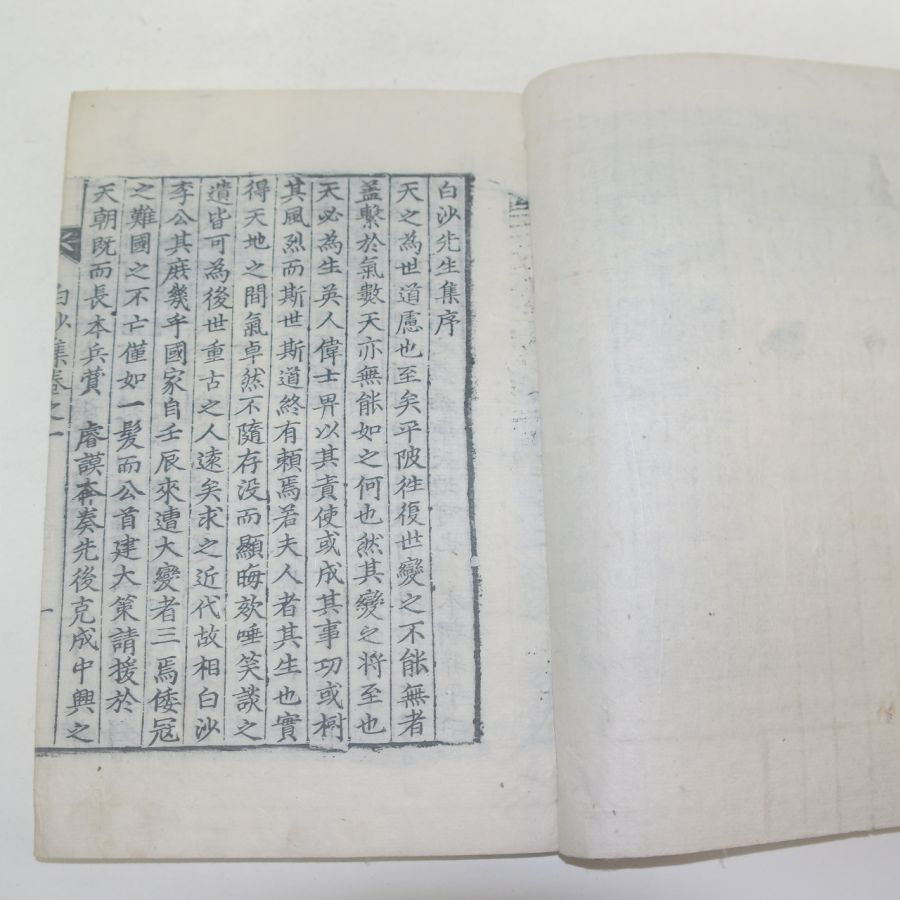 白沙先生集序
天之為世道慮也至矣平陂往復世變之不能無者
盖繫於氣數天亦無能如之何也然其變之将至也
天必為生英人偉士畀以其責使或成其事功或樹
其風烈而斯世斯道終有頼焉若夫人者其生也實
得天地之間氣卓然不隨存没而顯晦欬唾笑談之
遺皆可為後世重古之人遠矣求之近代故相白沙
李公其庶幾乎國家自壬辰來遭大變者三焉倭冦
之難國之不亡僅如一髮而公首建大策請援於
天朝既而長本兵賛 睿謨奔奏先後克成中興之
白沙集卷之一
一